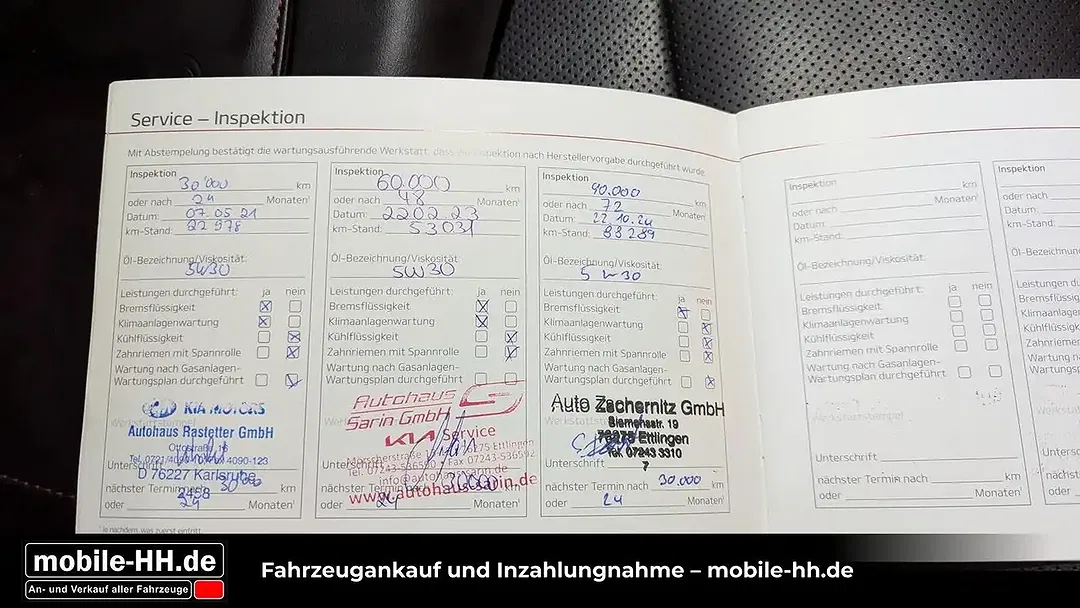 Service – Inspektion
Mit Abstempelung bestätigt die wartungsausführende Werkstatt, dass die Inspektion nach Herstellervorgabe durchgeführt wurde.
Inspektion 30'000 km
oder nach 24 Monaten¹
Datum: 07.05 21
km-Stand: 22 978
Öl-Bezeichnung/Viskosität:
5W30
Leistungen durchgeführt: ja nein
Bremsflüssigkeit
Klimaanlagenwartung
Kühlflüssigkeit
Zahnriemen mit Spannrolle
Wartung nach Gasanlagen-
Wartungsplan durchgeführt
KIA MOTORS
Autohaus Rastetter GmbH
Unterschrift
D 76227 Karlsruhe
nächster Termin nach 30'000 km
oder 24 Monaten¹
¹ Je nachdem, was zuerst eintritt.
Inspektion 60.000 km
oder nach 48 Monaten¹
Datum: 22 02 23
km-Stand: 53031
Öl-Bezeichnung/Viskosität:
5W30
Leistungen durchgeführt: ja nein
Bremsflüssigkeit
Klimaanlagenwartung
Kühlflüssigkeit
Zahnriemen mit Spannrolle
Wartung nach Gasanlagen-
Wartungsplan durchgeführt
Autohaus
Sarin GmbH
KIA Service
76275 Ettlingen
Unterschrift
www.autohaus-sarin.de
nächster Termin nach km
oder 24 Monaten¹
Inspektion 90.000 km
oder nach 72 Monaten¹
Datum: 22.10.24
km-Stand: 88289
Öl-Bezeichnung/Viskosität:
5 W 30
Leistungen durchgeführt: ja nein
Bremsflüssigkeit
Klimaanlagenwartung
Kühlflüssigkeit
Zahnriemen mit Spannrolle
Wartung nach Gasanlagen-
Wartungsplan durchgeführt
Auto Zschernitz GmbH
Siemensstr. 19
76275 Ettlingen
Tel. 07243 3310
7
Unterschrift
nächster Termin nach 30.000 km
oder 24 Monaten¹
Inspektion km
oder nach Monaten¹
Datum:
km-Stand:
Öl-Bezeichnung/Viskosität:
Leistungen durchgeführt: ja nein
Bremsflüssigkeit
Klimaanlagenwartung
Kühlflüssigkeit
Zahnriemen mit Spannrolle
Wartung nach Gasanlagen-
Wartungsplan durchgeführt
Werkstattstempel
Unterschrift
nächster Termin nach km
oder Monaten¹
Inspektion
oder nach
Datum:
km-Stand:
Öl-Bezeichnung
Leistungen
Bremsflüssig
Klimaanlagen
Kühlflüssig
Zahnriemen
Wartung nach
Wartungsplan
Unterschrift
nächster
oder
mobile-HH.de
An- und Verkauf aller Fahrzeuge
Fahrzeugankauf und Inzahlungnahme – mobile-hh.de